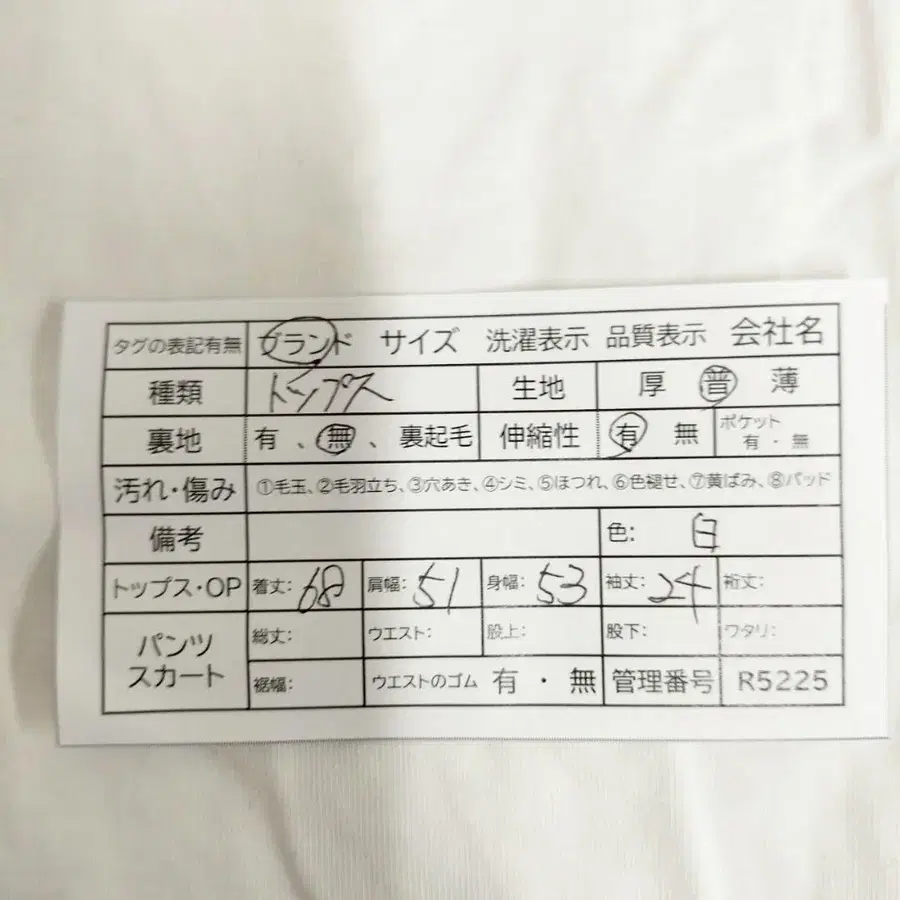 タグの表記有無 ブランド サイズ 洗濯表示 品質表示 会社名
種類 トップス 生地 厚 普 薄
裏地 有 、無 、裏起毛 伸縮性 有 無 ポケット 有・無
汚れ・傷み ①毛玉、②毛羽立ち、③穴あき、④シミ、⑤ほつれ、⑥色褪せ、⑦黄ばみ、⑧パッド
備考 色: 白
トップス・OP 着丈: 68 肩幅: 51 身幅: 53 袖丈: 24 裄丈:
パンツ スカート 総丈: ウエスト: 股上: 股下: ワタリ:
裾幅: ウエストのゴム 有・無 管理番号 R5225